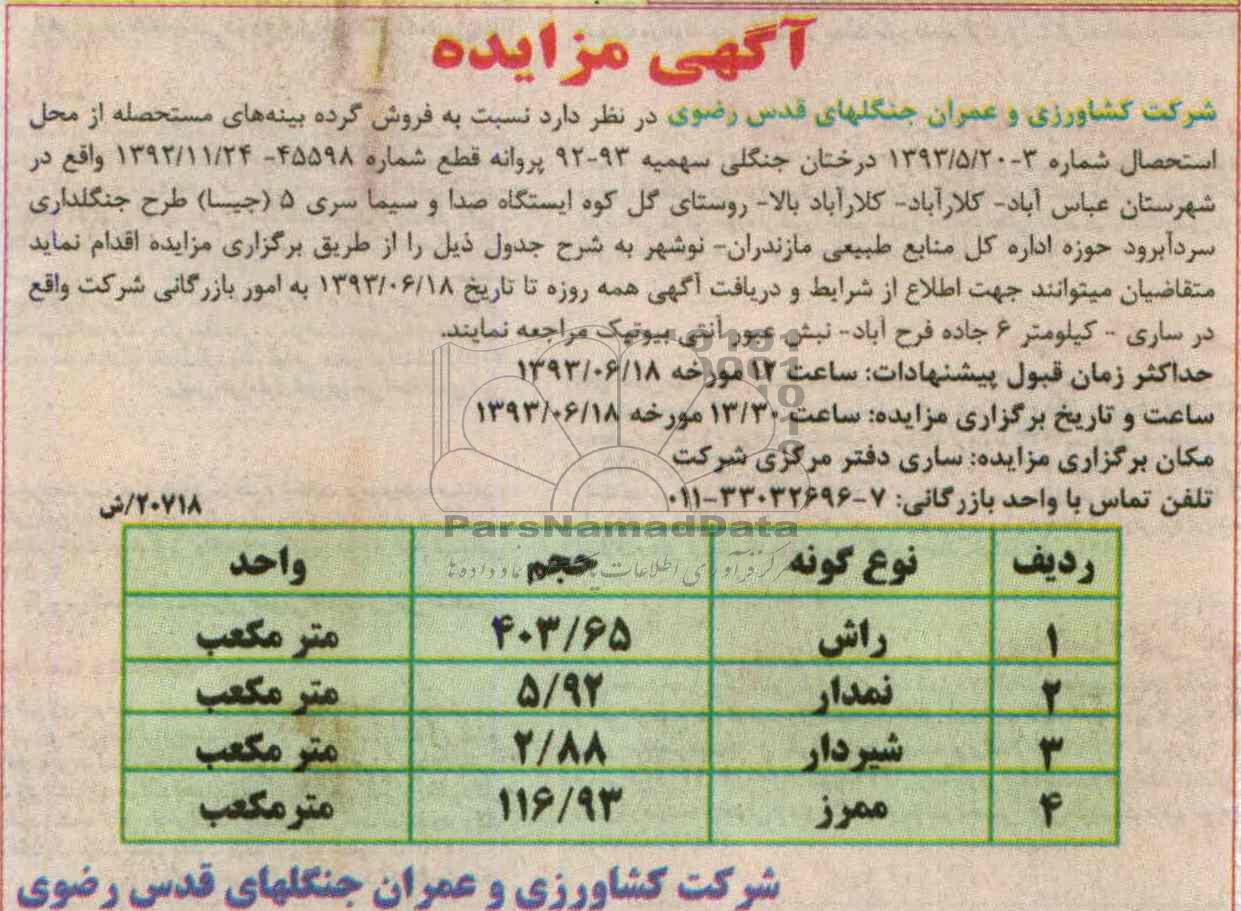 آگهی مزایده
شرکت کشاورزی و عمران جنگلهای قدس رضوی در نظر دارد نسبت به فروش گرده بینه‌های مستحصله از محل
استحصال شماره ۳-۱۳۹۳/۵/۲۰ درختان جنگلی سهمیه ۹۳-۹۲ پروانه قطع شماره ۴۵۵۹۸- ۱۳۹۲/۱۱/۲۴ واقع در
شهرستان عباس آباد- کلارآباد- کلارآباد بالا- روستای گل کوه ایستگاه صدا و سیما سری ۵ (جیسا) طرح جنگلداری
سردآبرود حوزه اداره کل منابع طبیعی مازندران- نوشهر به شرح جدول ذیل را از طریق برگزاری مزایده اقدام نماید
متقاضیان میتوانند جهت اطلاع از شرایط و دریافت آگهی همه روزه تا تاریخ ۱۳۹۳/۰۶/۱۸ به امور بازرگانی شرکت واقع
در ساری - کیلومتر ۶ جاده فرح آباد- نبش عبور آنتی بیوتیک مراجعه نمایند.
حداکثر زمان قبول پیشنهادات: ساعت ۱۲ مورخه ۱۳۹۳/۰۶/۱۸
ساعت و تاریخ برگزاری مزایده: ساعت ۱۳/۳۰ مورخه ۱۳۹۳/۰۶/۱۸
مکان برگزاری مزایده: ساری دفتر مرکزی شرکت
تلفن تماس با واحد بازرگانی: ۷-۳۳۰۳۲۶۹۶-۰۱۱
۲۰۷۱۸/ش
ParsNamadData
ردیف نوع گونه حجم واحد
۱ راش ۴۰۳/۶۵ متر مکعب
۲ نمدار ۵/۹۲ متر مکعب
۳ شیردار ۲/۸۸ متر مکعب
۴ ممرز ۱۱۶/۹۳ مترمکعب
شرکت کشاورزی و عمران جنگلهای قدس رضوی